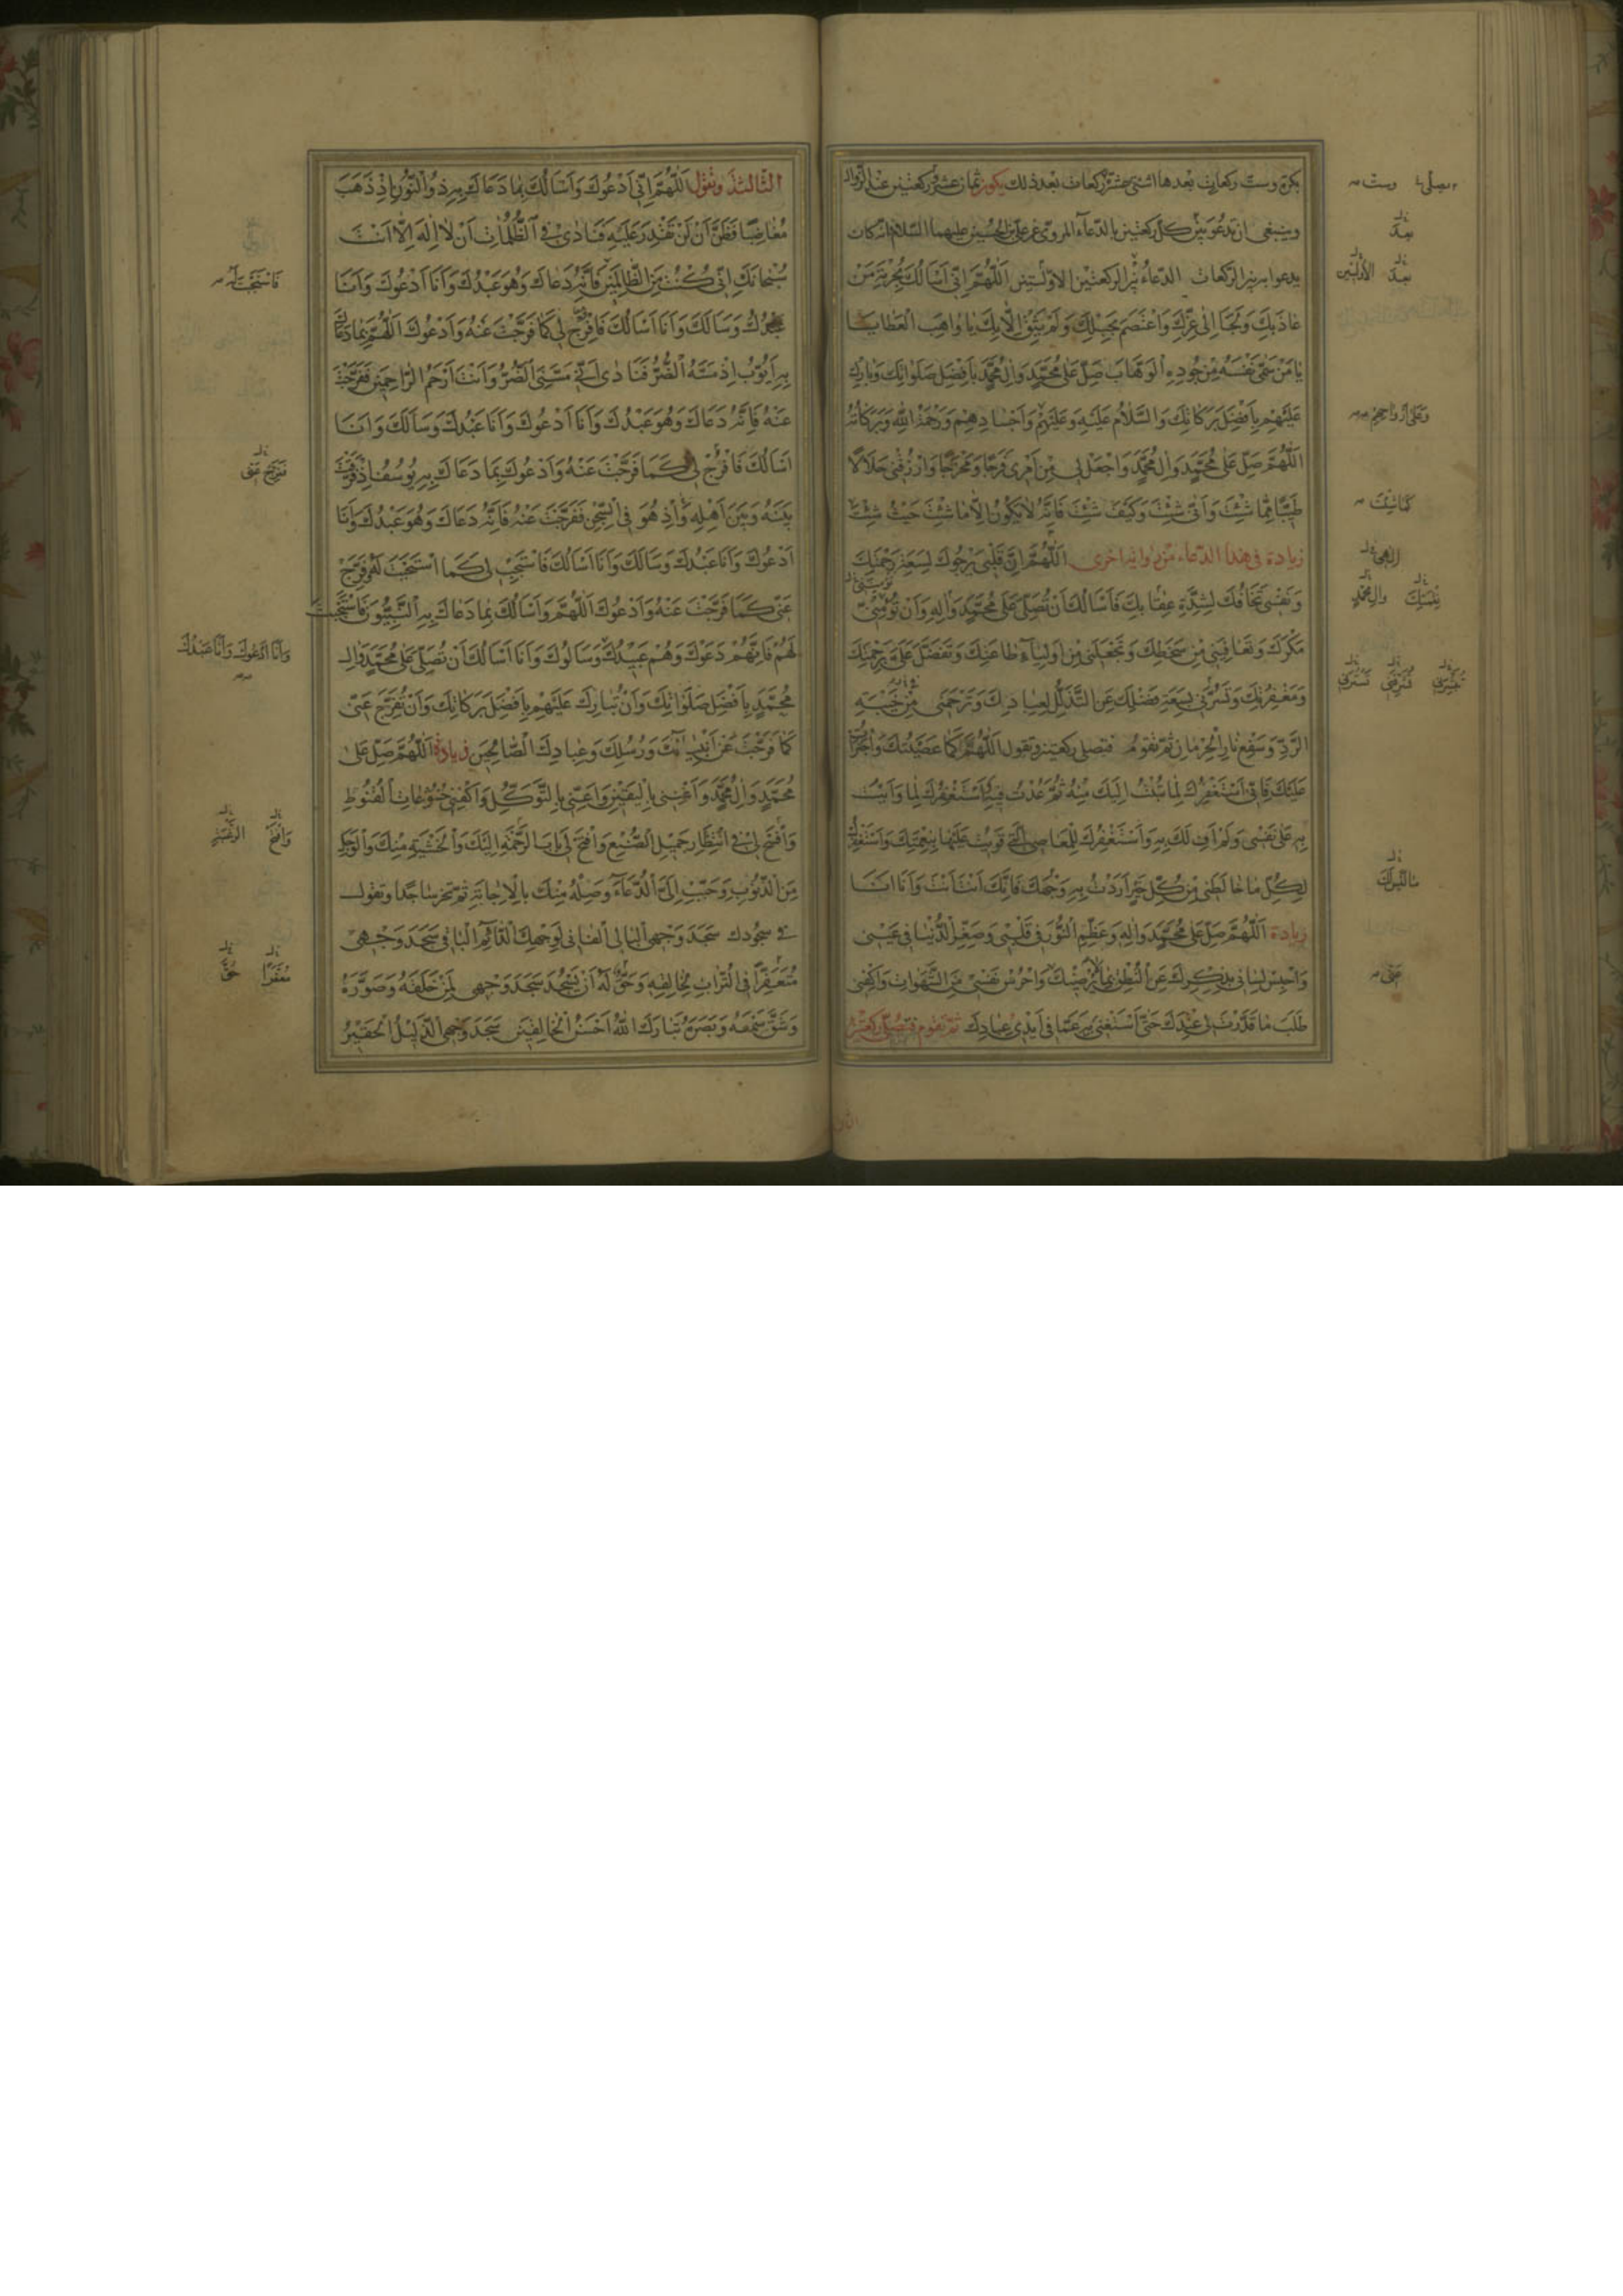 بكرة وست ركعات بعدها اثنتى عشرة ركعات بعد ذلك يكون ثمان عشرة وركعتين عند الزوال
وينبغى ان يدعو بين كل ركعتين بالدعاء المروى عن على بن الحسين عليهما السلام انه كان
يدعوا به بين الركعات الدعاء بين الركعتين الاولتين اَللّهُمَّ اِنّى اَسْاَلُكَ بِحُرْمَةِ مَنْ
عاذَ بِكَ وَلَجَأَ اِلى عِزِّكَ وَاعْتَصَمَ بِحَبْلِكَ وَلَمْ يَثِقْ اِلّا بِكَ يا واهِبَ الْعَطايا
يا مَنْ سَمّى نَفْسَهُ مِنْ جُودِهِ الْوَهّابَ صَلِّ عَلى مُحَمَّدٍ وَالِ مُحَمَّدٍ بِاَفْضَلِ صَلَواتِكَ وَبارِكْ
عَلَيْهِمْ بِاَفْضَلِ بَرَكاتِكَ وَالسَّلامُ عَلَيْهِ وَعَلَيْهِمْ وَاَجْسادِهِمْ وَرَحْمَةُ اللهِ وَبَرَكاتُهُ
اَللّهُمَّ صَلِّ عَلى مُحَمَّدٍ وَالِ مُحَمَّدٍ وَاجْعَلْ لى مِنْ اَمْرى فَرَجًا وَمَخْرَجًا وَارْزُقْنى حَلالًا
طَيِّبًا مِمّا شِئْتَ وَاَنّى شِئْتَ وَكَيْفَ شِئْتَ فَاِنَّهُ لا يَكُونُ اِلّا ما شِئْتَ حَيْثُ شِئْتَ
زيادة فى هذا الدعاء من رواية اخرى اَللّهُمَّ اِنَّ قَلْبى يَرْجُوكَ لِسَعَةِ رَحْمَتِكَ
وَنَفْسى تَخافُكَ لِشِدَّةِ عِقابِكَ فَاَسْاَلُكَ اَنْ تُصَلِّىَ عَلى مُحَمَّدٍ وَالِهِ وَاَنْ تُؤْمِنَنى
مَكْرَكَ وَتُعافِيَنى مِنْ سَخَطِكَ وَتَجْعَلَنى مِنْ اَوْلِياءِ طاعَتِكَ وَتَفَضَّلَ عَلَىَّ بِرَحْمَتِكَ
وَمَغْفِرَتِكَ وَتَسُرَّنى بِسَعَةِ فَضْلِكَ عَنِ التَّذَلُّلِ لِعِبادِكَ وَتَرْحَمَنى مِنْ خَيْبَةِ
الرَّدِّ وَسَفْعِ نارِ الْحِرْمانِ ثم تقوم فتصلى ركعتين وتقول اَللّهُمَّ كَما عَصَيْتُكَ وَاجْتَرَأْتُ
عَلَيْكَ فَاِنّى اَسْتَغْفِرُكَ لِما تُبْتُ اِلَيْكَ مِنْهُ ثُمَّ عُدْتُ فيهِ وَاَسْتَغْفِرُكَ لِما وَاَيْتُ
بِهِ عَلى نَفْسى وَلَمْ اَفِ لَكَ بِهِ وَاَسْتَغْفِرُكَ لِلْمَعاصِى الَّتى قَوِيتُ عَلَيْها بِنِعْمَتِكَ وَاَسْتَغْفِرُكَ
لِكُلِّ ما خالَطَنى مِنْ كُلِّ خَيْرٍ اَرَدْتُ بِهِ وَجْهَكَ فَاِنَّكَ اَنْتَ اَنْتَ وَاَنَا اَنَا
زيادة اَللّهُمَّ صَلِّ عَلى مُحَمَّدٍ وَالِهِ وَعَظِّمِ النُّورَ فى قَلْبى وَصَغِّرِ الدُّنْيا فى عَيْنى
وَاحْبِسْ لِسانى بِذِكْرِكَ عَنِ النُّطْقِ بِما لا يُرْضيكَ وَاحْرُسْ نَفْسى مِنَ الشَّهَواتِ وَاكْفِنى
طَلَبَ ما قَدَّرْتَ لى عِنْدَكَ حَتّى اَسْتَغْنِىَ بِهِ عَمّا فى اَيْدى عِبادِكَ ثم تقوم فتصلى ركعتين
يصلى
وست
بعد
بعد الاولتين
وَعَلى اَرْواحِهِمْ
كَما شِئْتَ
الهى
والِ مُحَمَّدٍ
عنى
الثالثة وتقول اَللّهُمَّ اِنّى اَدْعُوكَ وَاَسْاَلُكَ بِما دَعاكَ بِهِ ذُو النُّونِ اِذْ ذَهَبَ
مُغاضِبًا فَظَنَّ اَنْ لَنْ تَقْدِرَ عَلَيْهِ فَنادى فِى الظُّلُماتِ اَنْ لا اِلهَ اِلّا اَنْتَ
سُبْحانَكَ اِنّى كُنْتُ مِنَ الظّالِمينَ فَاِنَّهُ دَعاكَ وَهُوَ عَبْدُكَ وَاَنَا اَدْعُوكَ وَاَنَا
عَبْدُكَ وَسَاَلَكَ وَاَنَا اَسْاَلُكَ فَافْرُجْ لى كَما فَرَّجْتَ عَنْهُ وَاَدْعُوكَ اَللّهُمَّ بِما دَعاكَ
بِهِ اَيُّوبُ اِذْ مَسَّهُ الضُّرُّ فَنادى اَنّى مَسَّنِىَ الضُّرُّ وَاَنْتَ اَرْحَمُ الرّاحِمينَ فَفَرَّجْتَ
عَنْهُ فَاِنَّهُ دَعاكَ وَهُوَ عَبْدُكَ وَاَنَا اَدْعُوكَ وَاَنَا عَبْدُكَ وَسَاَلَكَ وَاَنَا
اَسْاَلُكَ فَافْرُجْ لى كَما فَرَّجْتَ عَنْهُ وَاَدْعُوكَ بِما دَعاكَ بِهِ يُوسُفُ اِذْ فَرَّقْتَ
بَيْنَهُ وَبَيْنَ اَهْلِهِ وَاِذْ هُوَ فِى السِّجْنِ فَفَرَّجْتَ عَنْهُ فَاِنَّهُ دَعاكَ وَهُوَ عَبْدُكَ وَاَنَا
اَدْعُوكَ وَاَنَا عَبْدُكَ وَسَاَلَكَ وَاَنَا اَسْاَلُكَ فَاسْتَجِبْ لى كَما اسْتَجَبْتَ لَهُ وَفَرِّجْ
عَنّى كَما فَرَّجْتَ عَنْهُ وَاَدْعُوكَ اَللّهُمَّ وَاَسْاَلُكَ بِما دَعاكَ بِهِ النَّبِيُّونَ فَاسْتَجَبْتَ
لَهُمْ فَاِنَّهُمْ دَعَوْكَ وَهُمْ عَبيدُكَ وَسَاَلُوكَ وَاَنَا اَسْاَلُكَ اَنْ تُصَلِّىَ عَلى مُحَمَّدٍ وَالِ
مُحَمَّدٍ بِاَفْضَلِ صَلَواتِكَ وَاَنْ تُبارِكَ عَلَيْهِمْ بِاَفْضَلِ بَرَكاتِكَ وَاَنْ تُفَرِّجَ عَنّى
كَما فَرَّجْتَ عَنْ اَنْبِيائِكَ وَرُسُلِكَ وَعِبادِكَ الصّالِحينَ زيادة اَللّهُمَّ صَلِّ عَلى
مُحَمَّدٍ وَالِ مُحَمَّدٍ وَاَغْنِنى بِالْيَقينِ وَاَعِنّى بِالتَّوَكُّلِ وَاكْفِنى رَوْعاتِ الْقُنُوطِ
وَافْسَحْ لى فِى انْتِظارِ جَميلِ الصُّنْعِ وَافْتَحْ لى بابَ الرَّحْمَةِ اِلَيْكَ وَالْخَشْيَةِ مِنْكَ وَالْوَجَلِ
مِنَ الذُّنُوبِ وَحَبِّبْ اِلَىَّ الدُّعاءَ وَصِلْهُ مِنْكَ بِالْاِجابَةِ ثم تخر ساجدا وتقول
فى سجودك سَجَدَ وَجْهِىَ الْبالِى الْفانى لِوَجْهِكَ الدّائِمِ الْباقى سَجَدَ وَجْهى
مُتَعَفِّرًا فِى التُّرابِ لِخالِقِهِ وَحَقٌّ لَهُ اَنْ يَسْجُدَ سَجَدَ وَجْهى لِمَنْ خَلَقَهُ وَصَوَّرَهُ
وَشَقَّ سَمْعَهُ وَبَصَرَهُ تَبارَكَ اللهُ اَحْسَنُ الْخالِقينَ سَجَدَ وَجْهِىَ الذَّليلُ الْحَقيرُ
فَاسْتَجَبْتَ لَهُ
تُفَرِّجَ عَنّى
وَاَنَا اَدْعُوكَ وَاَنَا عَبْدُكَ
وَافْتَحْ
مُعَفَّرًا
حُقَّ